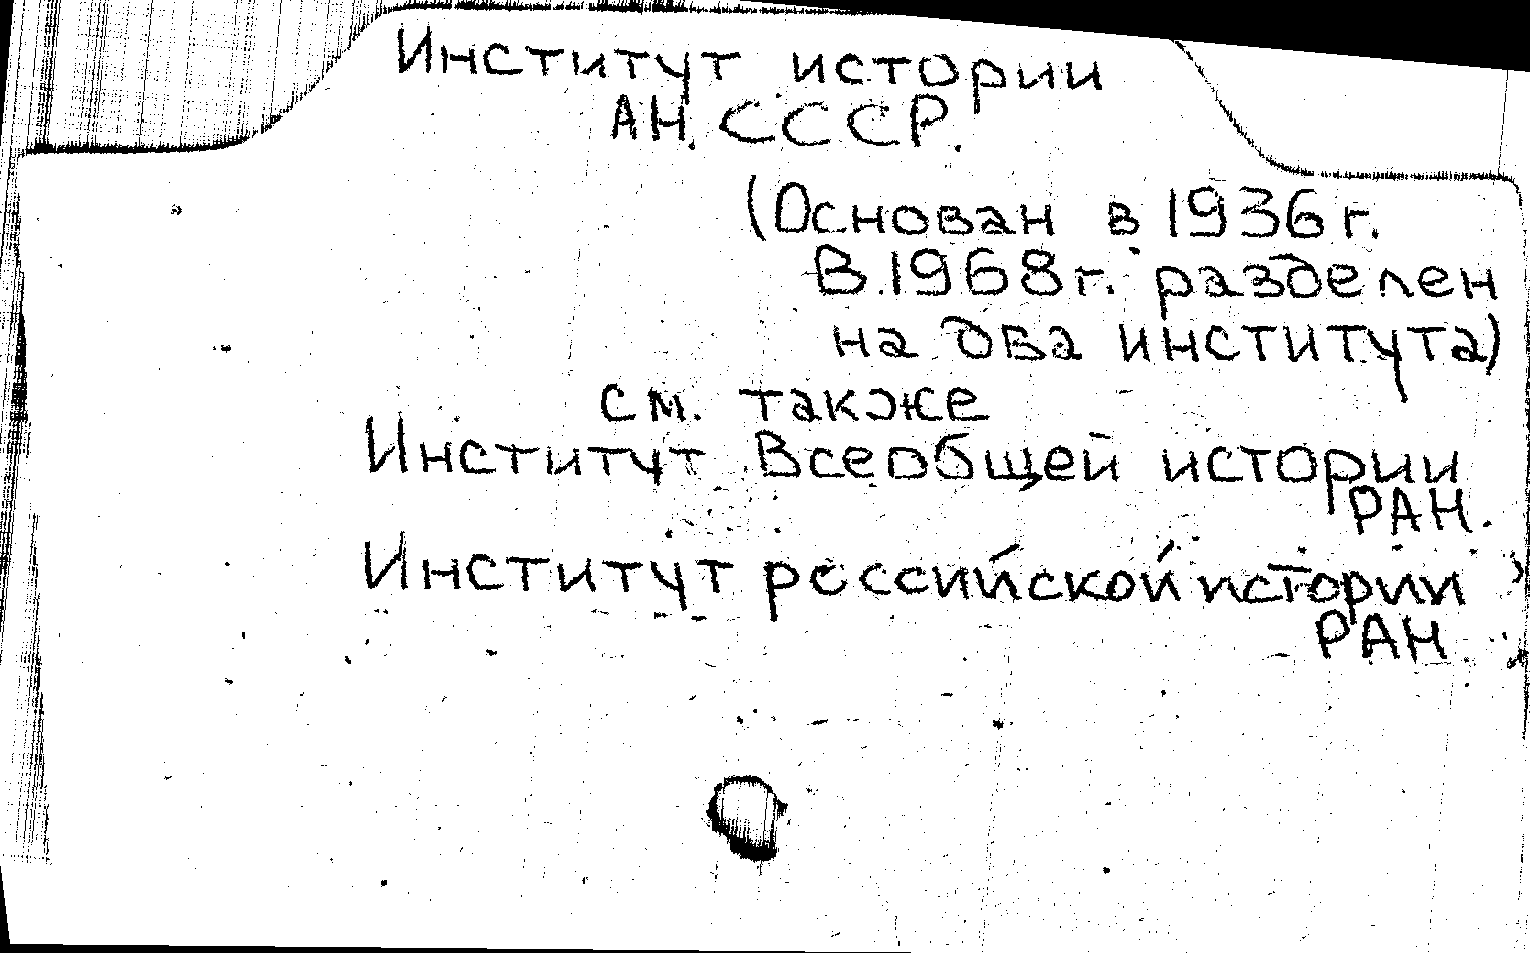 Институт истории
АН СССР.
(Основан в 1936 г.
В 1968 г. разделен
на два института)
см. также
Институт Всеобщей истории
РАН.
Институт российской истории
РАН